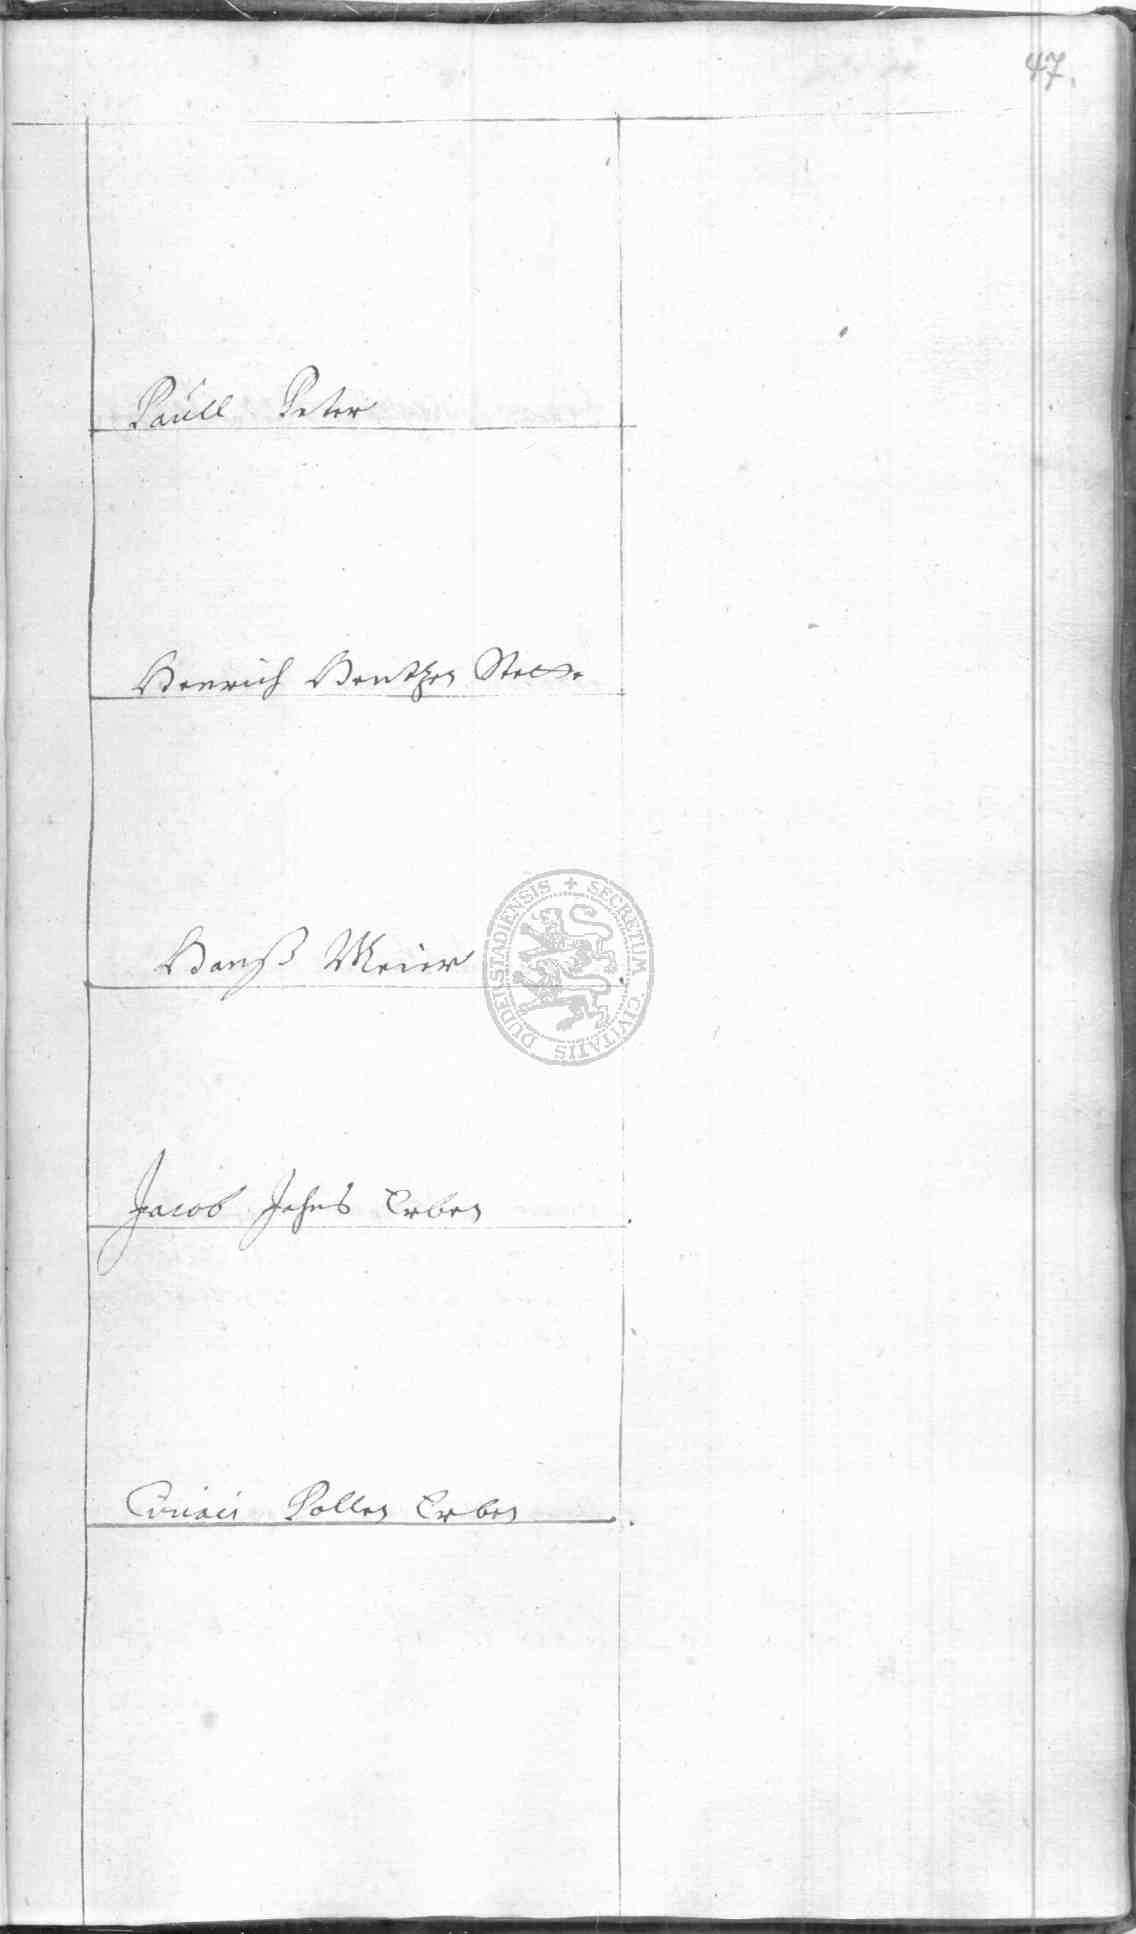 47.
Paull Peter
Henrich Hentzen Stette
Hanß Meier
SECRETUM CIVITATIS DUDERSTADIENSIS
Jacob Jehns Erben
Pollen Erben